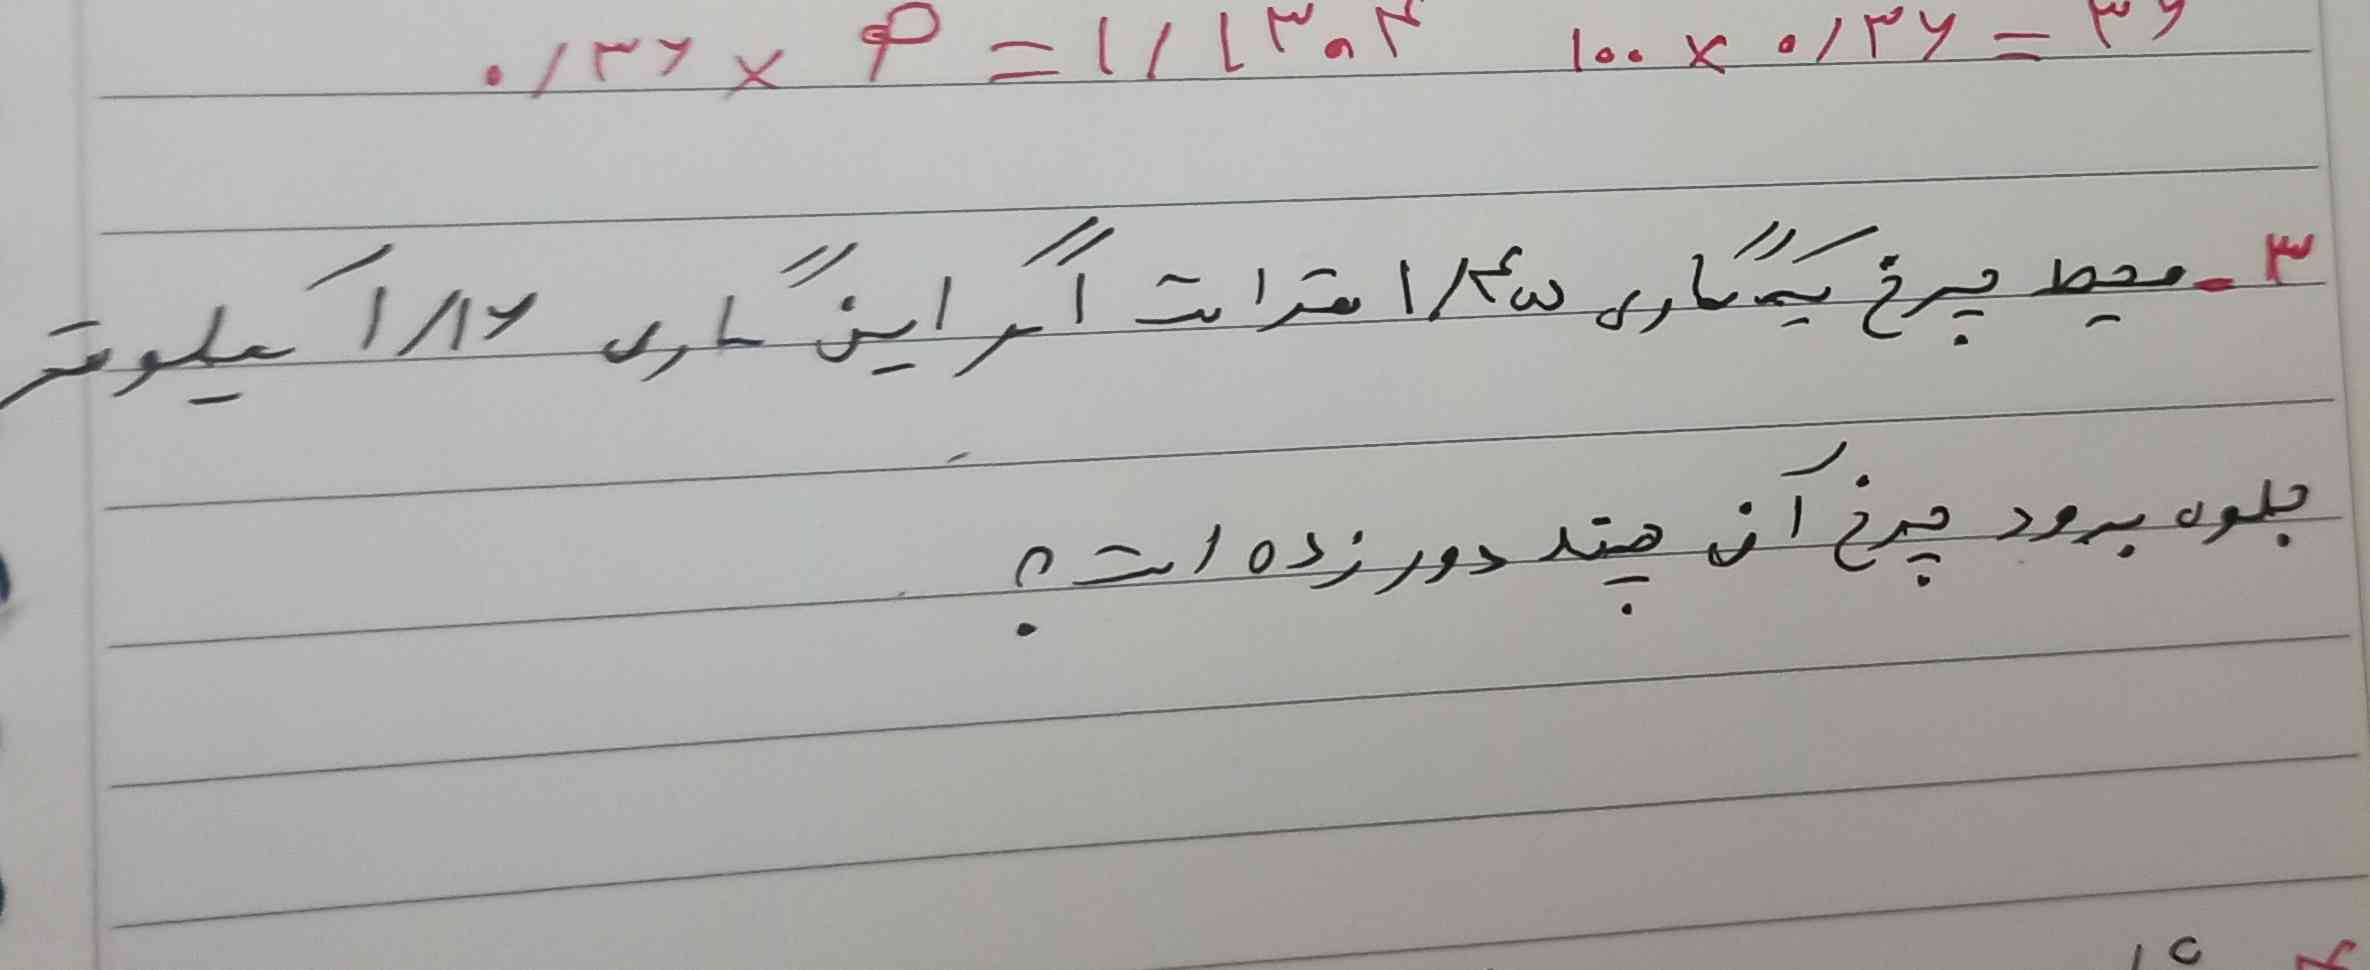 ۰/۳۶ × π = ۱/۱۳۰۴ ۱۰۰ × ۰/۳۶ = ۳۶
۳- محیط چرخ یک گاری ۱/۴۵ متر است اگر این گاری ۱/۸۶ کیلومتر
جلو برود چرخ آن چند دور زده است؟